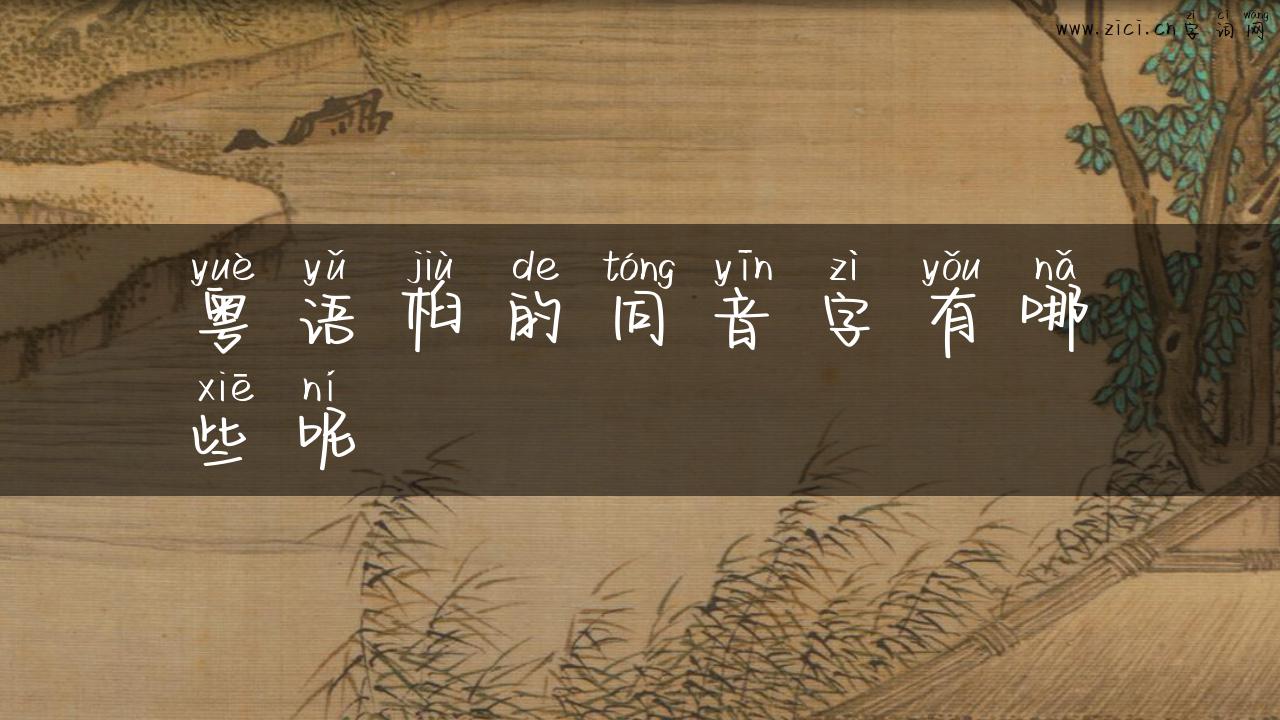 zì cí wǎng
www.zici.cn字词网
yuè yǔ jiù de tóng yīn zì yǒu nǎ
粤语桕的同音字有哪
xiē ní
些呢